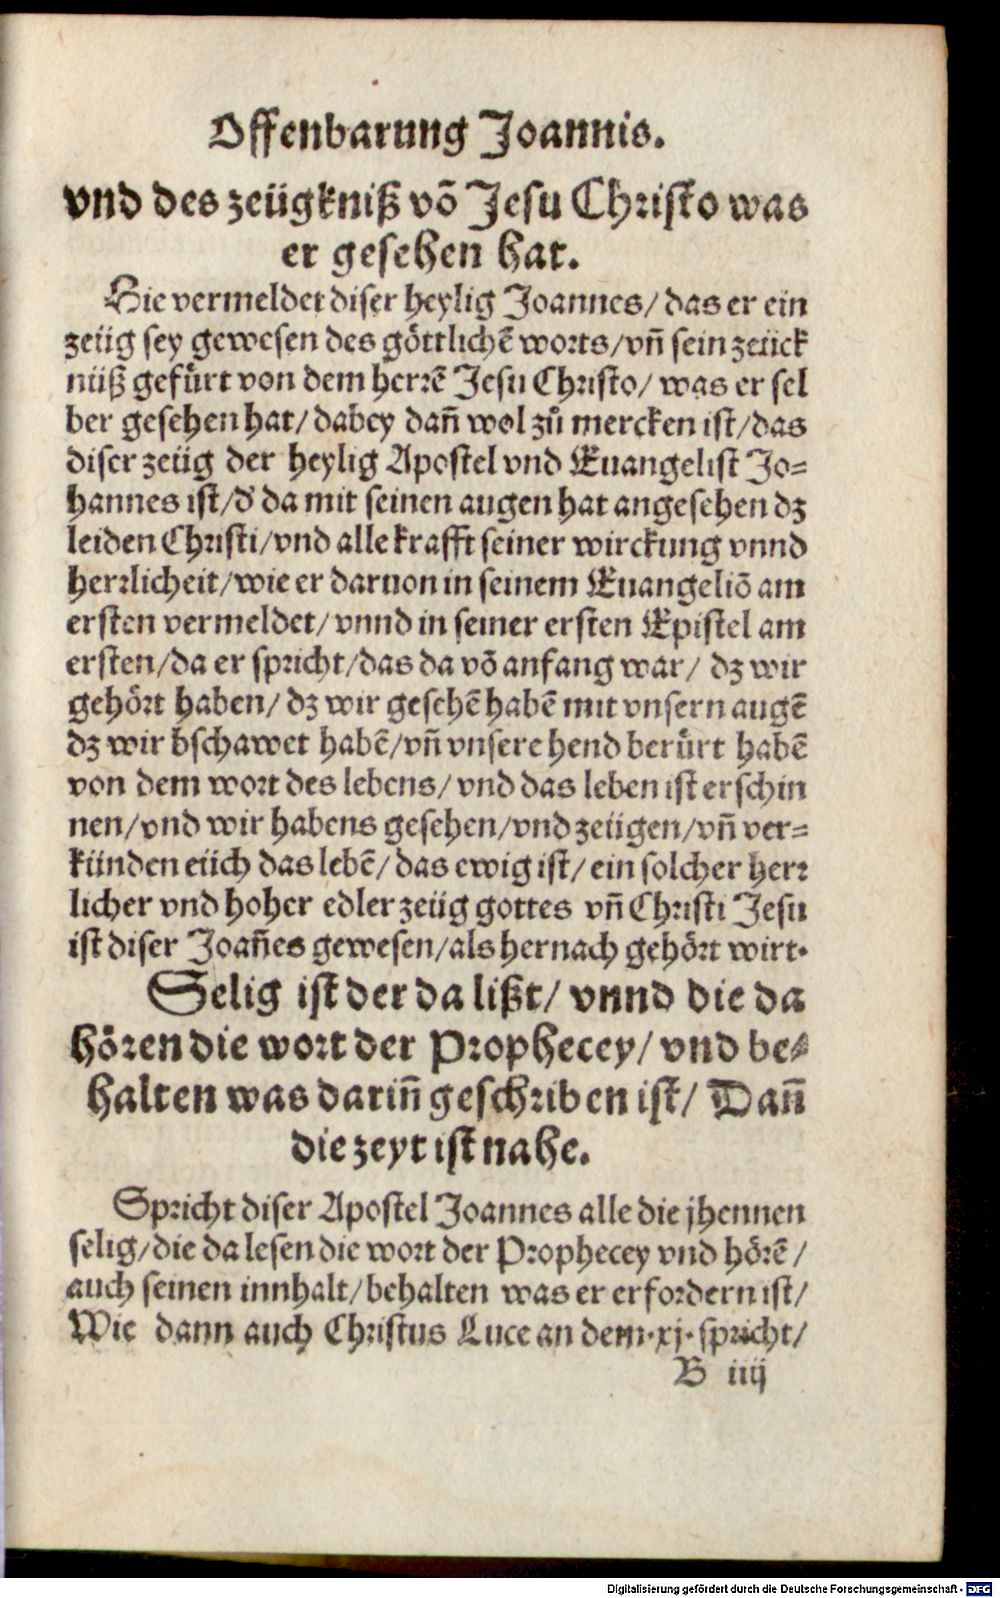 Offenbarung Joannis.
vnd des zeügkniß võ Jesu Christo was
er gesehen hat.
Hie vermeldet diser heylig Joannes/ das er ein
zeüg sey gewesen des göttlichẽ worts/ vñ sein zeück
nüß gefürt von dem herrẽ Jesu Christo/ was er sel
ber gesehen hat/ dabey dañ wol zů mercken ist/ das
diser zeüg der heylig Apostel vnd Euangelist Jo=
hannes ist/ d' da mit seinen augen hat angesehen dz
leiden Christi/ vnd alle krafft seiner wirckung vnnd
herrlicheit/ wie er daruon in seinem Euangeliõ am
ersten vermeldet/ vnnd in seiner ersten Epistel am
ersten/ da er spricht/ das da võ anfang war/ dz wir
gehört haben/ dz wir gesehẽ habẽ mit vnsern augẽ
dz wir bschawet habẽ/ vñ vnsere hend berürt habẽ
von dem wort des lebens/ vnd das leben ist erschin
nen/ vnd wir habens gesehen/ vnd zeügen/ vñ ver=
künden eüch das lebẽ/ das ewig ist/ ein solcher herr
licher vnd hoher edler zeüg gottes vñ Christi Jesu
ist diser Joañes gewesen/ als hernach gehört wirt.
Selig ist der da lißt/ vnnd die da
hören die wort der Prophecey/ vnd be=
halten was dariñ geschriben ist/ Dañ
die zeyt ist nahe.
Spricht diser Apostel Joannes alle die jhennen
selig/ die da lesen die wort der Prophecey vnd hörẽ/
auch seinen innhalt/ behalten was er erfordern ist/
Wie dann auch Christus Luce an dem .xj. spricht/
B iiij
Digitalisierung gefördert durch die Deutsche Forschungsgemeinschaft - DFG